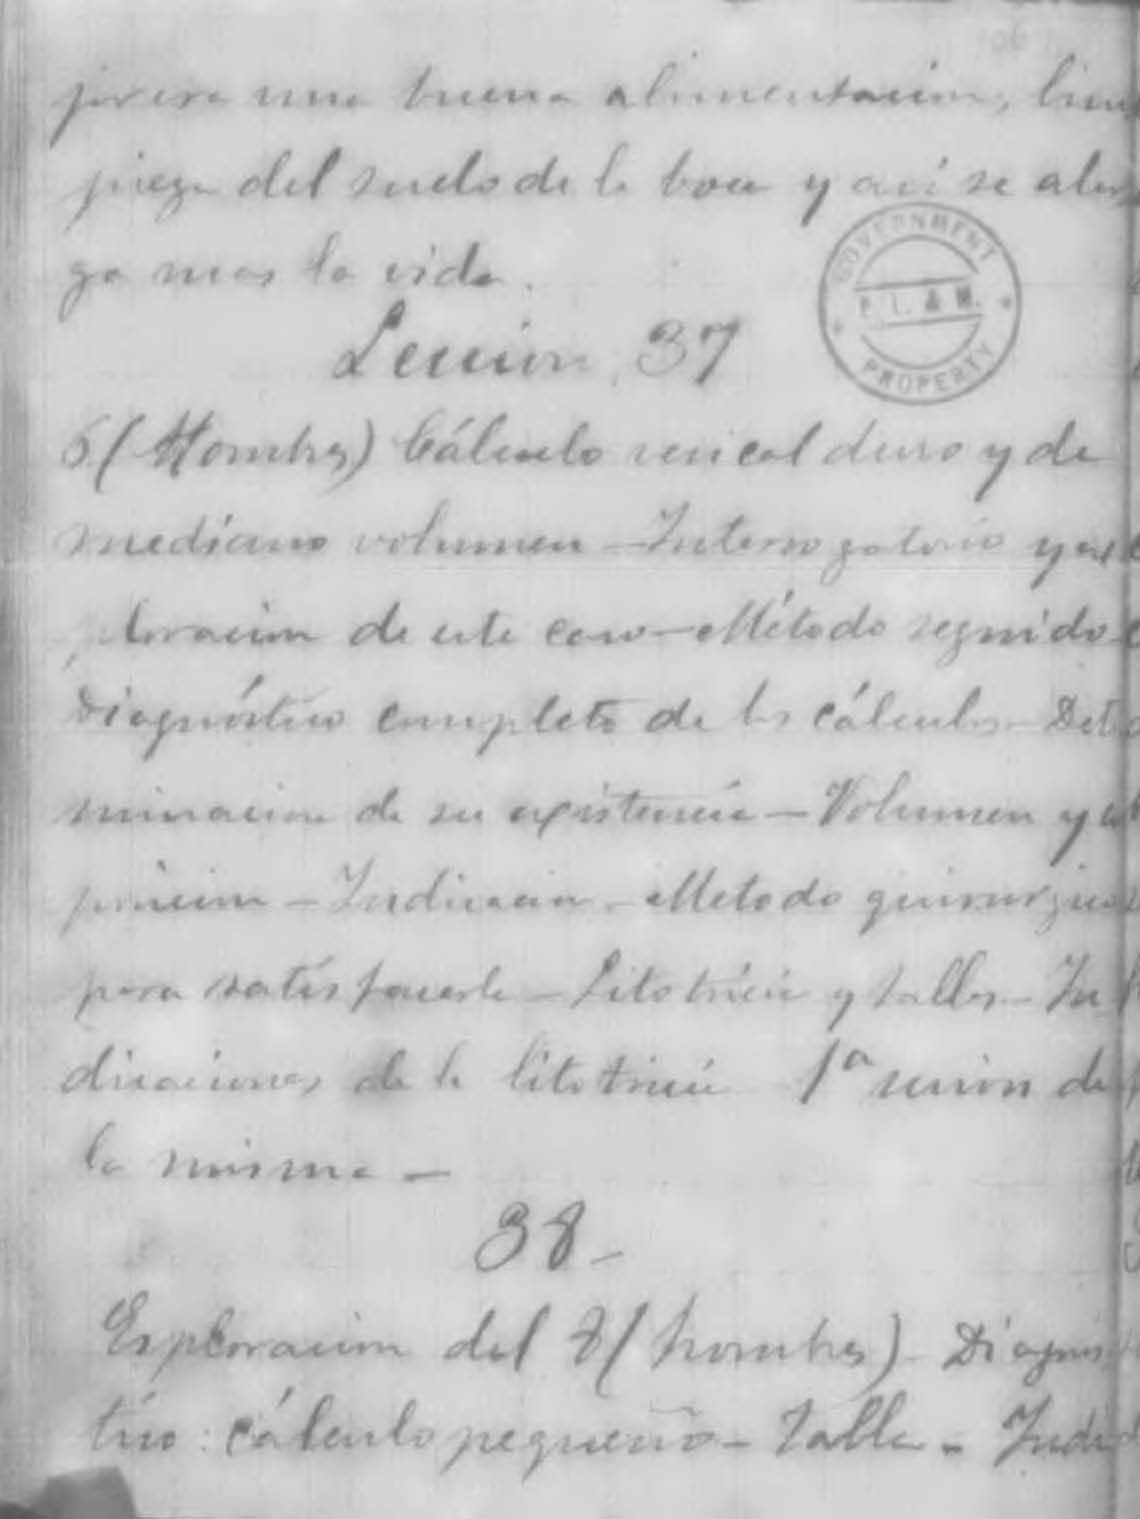 para una buena alimentacion, lim
pieza del suelo de la boca y asi se alar
ga mas la vida.
GOVERNMENT
P. L. & M.
PROPERTY
Leccion 37
6 (Hombres) Cálculo vesical duro y de
mediano volumen — Interrogatorio y ex
ploracion de este caso — Método seguido
Diagnóstico completo de los cálculos — Det
minacion de su existencia — Volumen y
posicion — Indicacion — Metodo quirurgico
para satisfacerla — Litotricia y talla — In
dicaciones de la litotricia 1ª sesion de
la misma —
38 —
Esploracion del 8 (hombres) — Diagnós
tico: cálculo pequeño — Talla — Indi